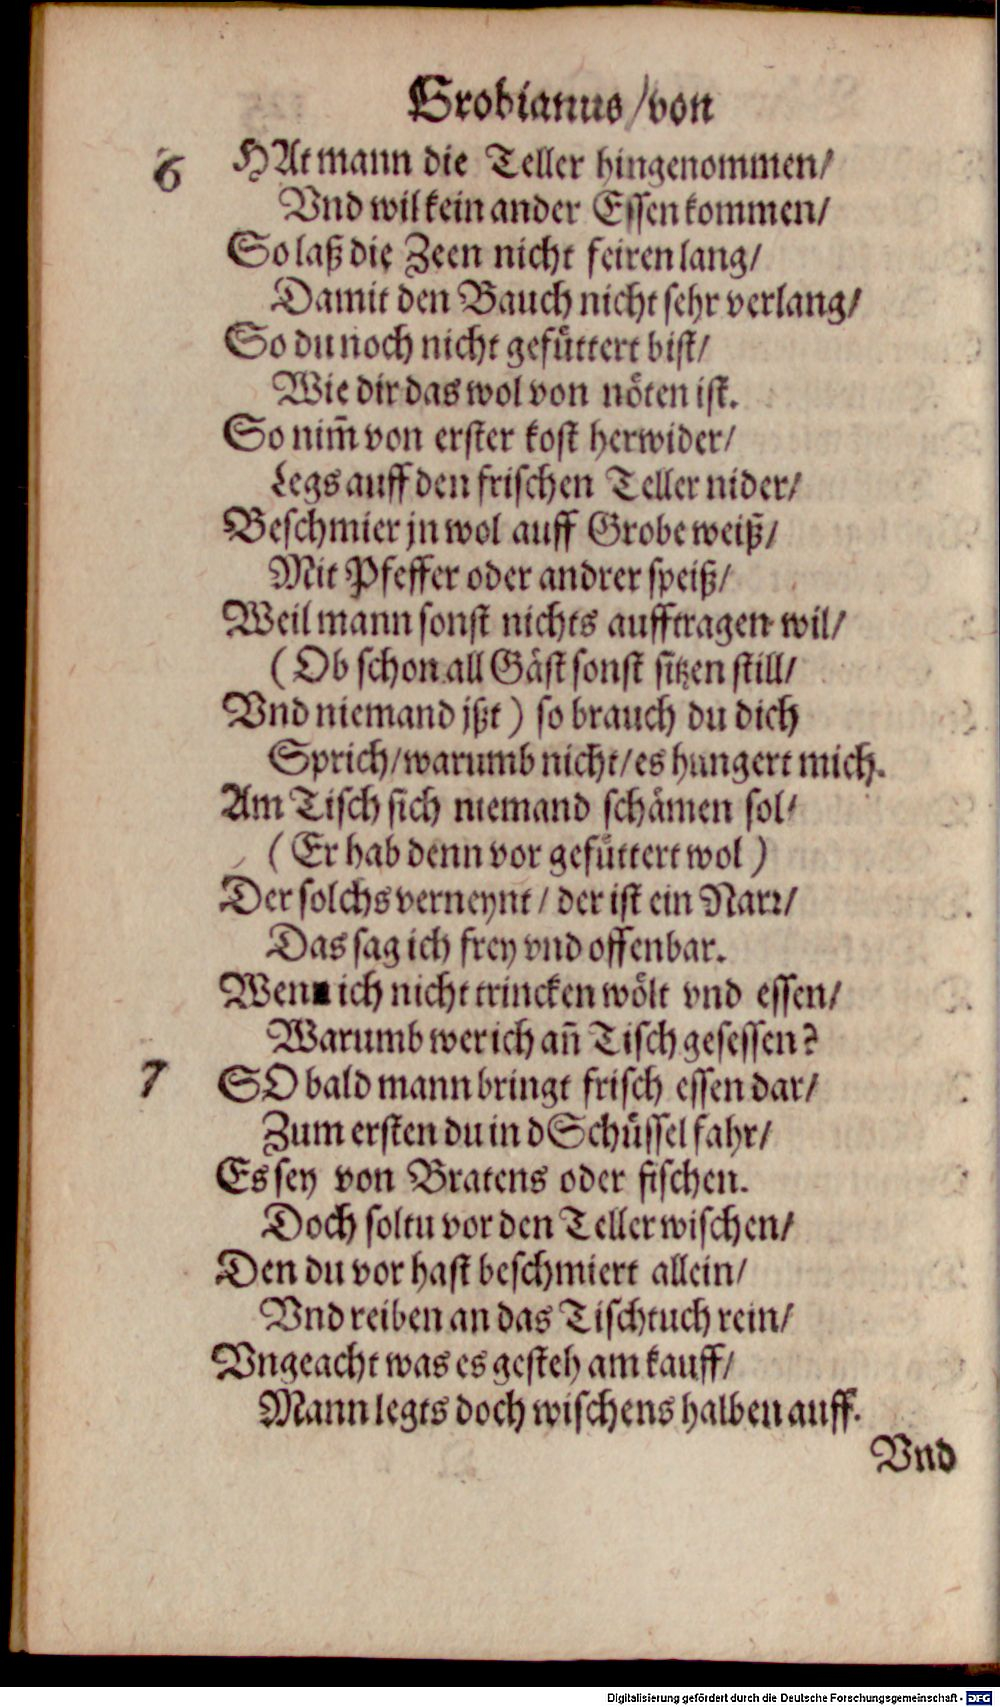 Grobianus / von
6 HAt mann die Teller hingenommen/
Vnd wil kein ander Essen kommen/
So laß die Zeen nicht feiren lang/
Damit den Bauch nicht sehr verlang/
So du noch nicht gefüttert bist/
Wie dir das wol von nöten ist.
So nim̃ von erster kost herwider/
Legs auff den frischen Teller nider/
Beschmier jn wol auff Grobe weiß/
Mit Pfeffer oder andrer speiß/
Weil mann sonst nichts aufftragen wil/
(Ob schon all Gäst sonst sitzen still/
Vnd niemand jßt) so brauch du dich
Sprich/ warumb nicht/ es hungert mich.
Am Tisch sich niemand schämen sol/
(Er hab denn vor gefüttert wol)
Der solchs verneynt / der ist ein Narr/
Das sag ich frey vnd offenbar.
Wenn ich nicht trincken wölt vnd essen/
Warumb wer ich an̄ Tisch gesessen?
7 SO bald mann bringt frisch essen dar/
Zum ersten du in d Schüssel fahr/
Es sey von Bratens oder fischen.
Doch soltu vor den Teller wischen/
Den du vor hast beschmiert allein/
Vnd reiben an das Tischtuch rein/
Vngeacht was es gesteh am kauff/
Mann legts doch wischens halben auff.
Vnd
Digitalisierung gefördert durch die Deutsche Forschungsgemeinschaft - DFG